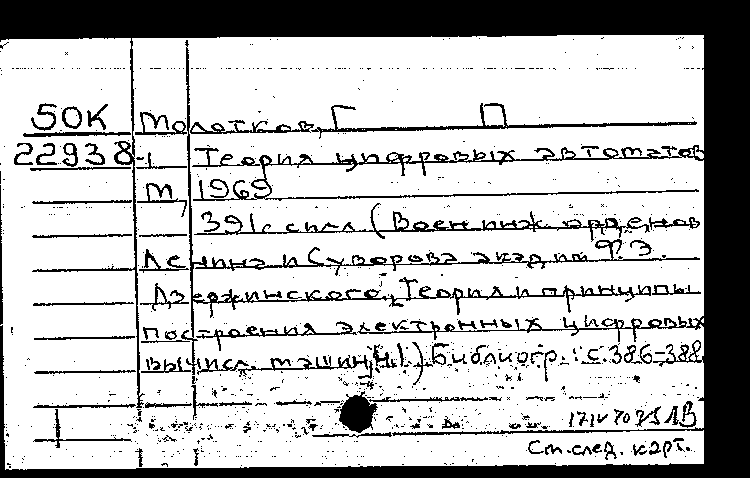 50К Молотков, Г П
22938-1 Теория цифровых автоматов
М, 1969
391с силл (Воен инж орденов
Ленина и Суворова акад им Ф.Э.
Дзержинского, Теория и принципы
построения электронных цифровых
вычисл. машин, Ч.1.) Библиогр.: с.386-388
См.след. карт.